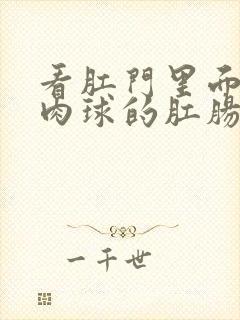 看肛門里而
肉球的肛腸
一千世